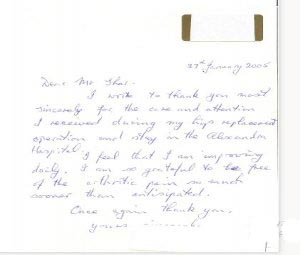 27th January 2005
Dear Mr Shah.
I write to thank you most
sincerely for the care and attention
I received during my hip replacement
operation and stay in the Alexandra
Hospital. I feel that I am improving
daily. I am so grateful to be free
of the arthritic pain so much
sooner than anticipated.
Once again thank you.
yours sincerely